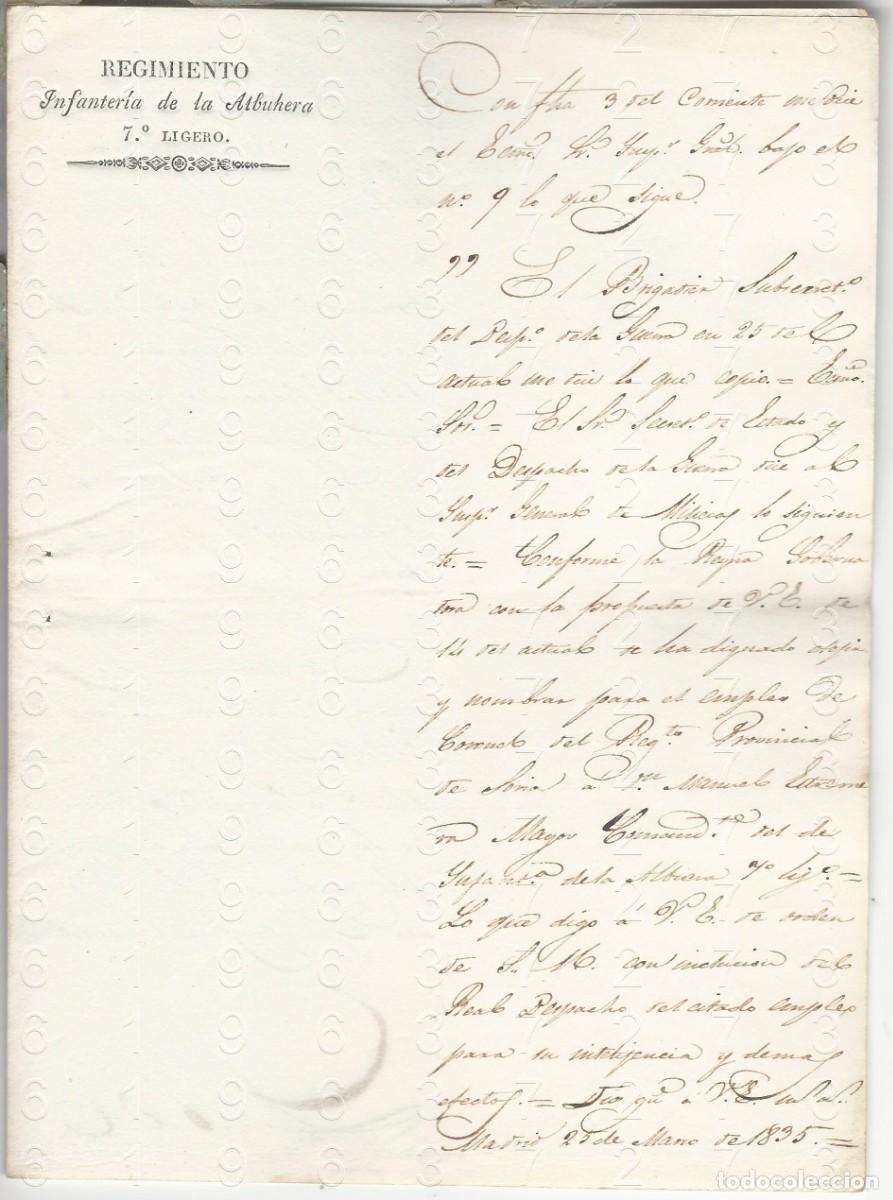 REGIMIENTO
Infantería de la Albuhera
7.º LIGERO.
Con fha 3 del Corriente me dice
el Ecmo. Sr. Insp.r Gral. bajo el
nº. 9 lo que sigue.
" El Brigadier Subsecret.º
del Desp.º de la Guerra en 25 del
actual me dice lo que copio. = Ecmo.
Sor. = El Sr. Secret.º de Estado y
del Despacho de la Guerra dice al
Insp.r General de Milicias lo siguien
te. = Conforme la Reyna Goberna
dora con la propuesta de V. E. de
14 del actual se ha dignado elejir
y nombrar para el empleo de
Coronel del Reg.to Provincial
de Soria á Dn. Manuel Estreme
ra Mayor Comand.te del de
Infant.ª de la Albuera 7º lig.º =
Lo que digo á V. E. de orden
de S. M. con inclucion del
Real Despacho del citado empleo
para su inteligencia y demas
efectos. = Dios gue. á V. E. m.s a.s
Madrid 25 de Marzo de 1835. =
todocoleccion